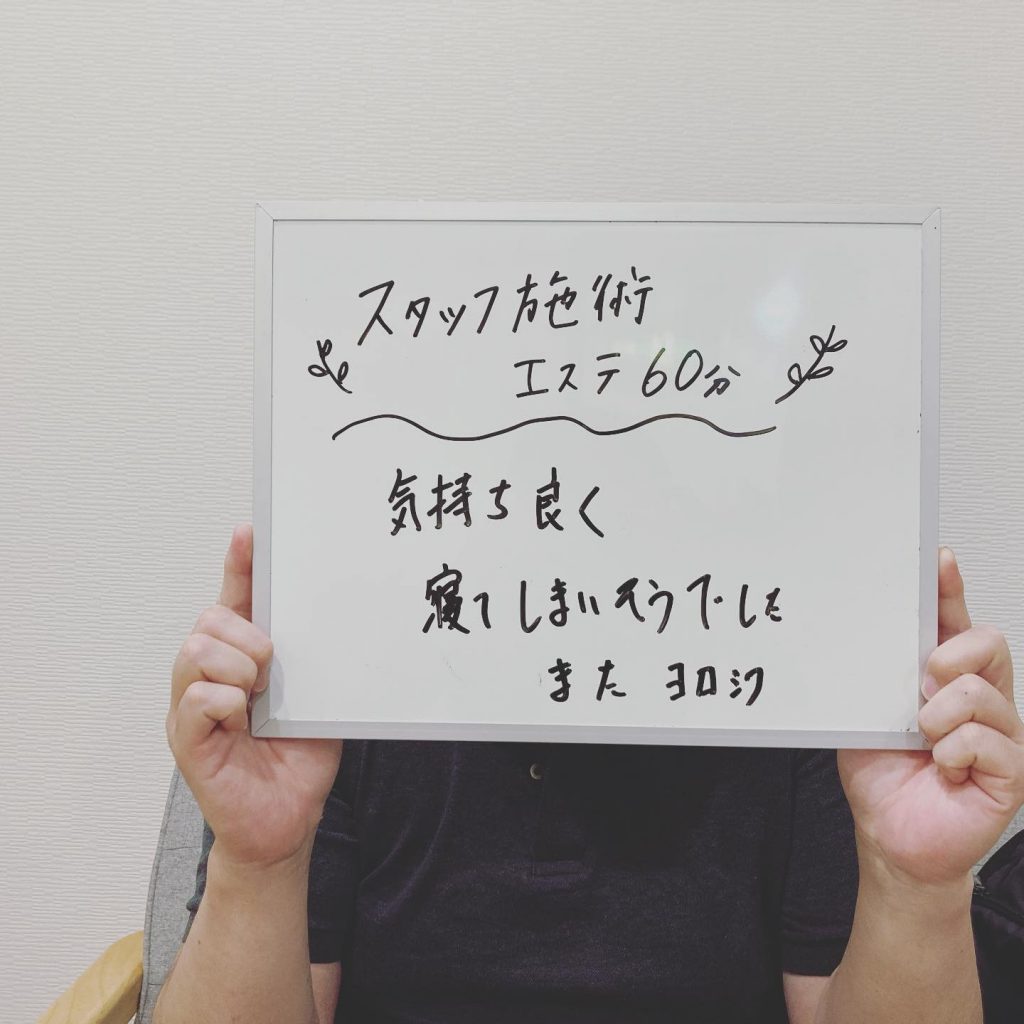 スタッフ施術
エステ60分
気持ち良く
寝てしまいそうでした
また ヨロシク